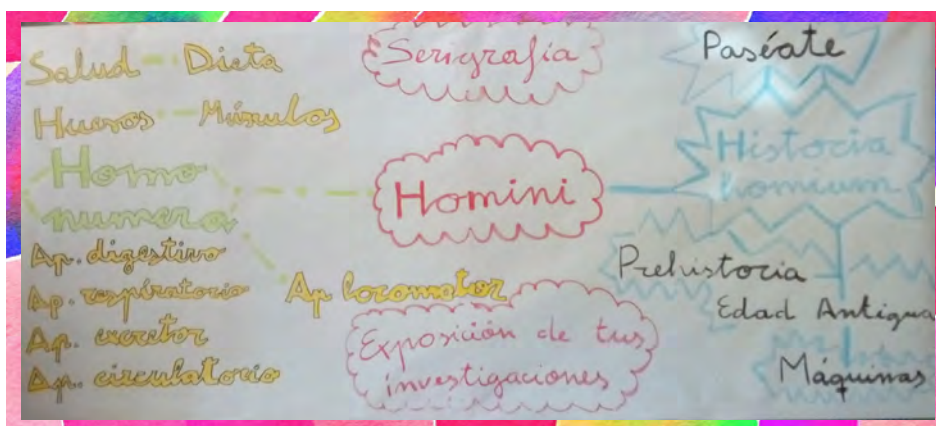 Salud Dieta
Huesos Músculos
Homo
numera
Ap. digestivo
Ap. respiratorio
Ap. excretor
Ap. circulatorio
Ap locomotor
Serigrafía
Homini
Exposición de tus
investigaciones
Paséate
Historia
homium
Prehistoria
Edad Antigua
Máquinas